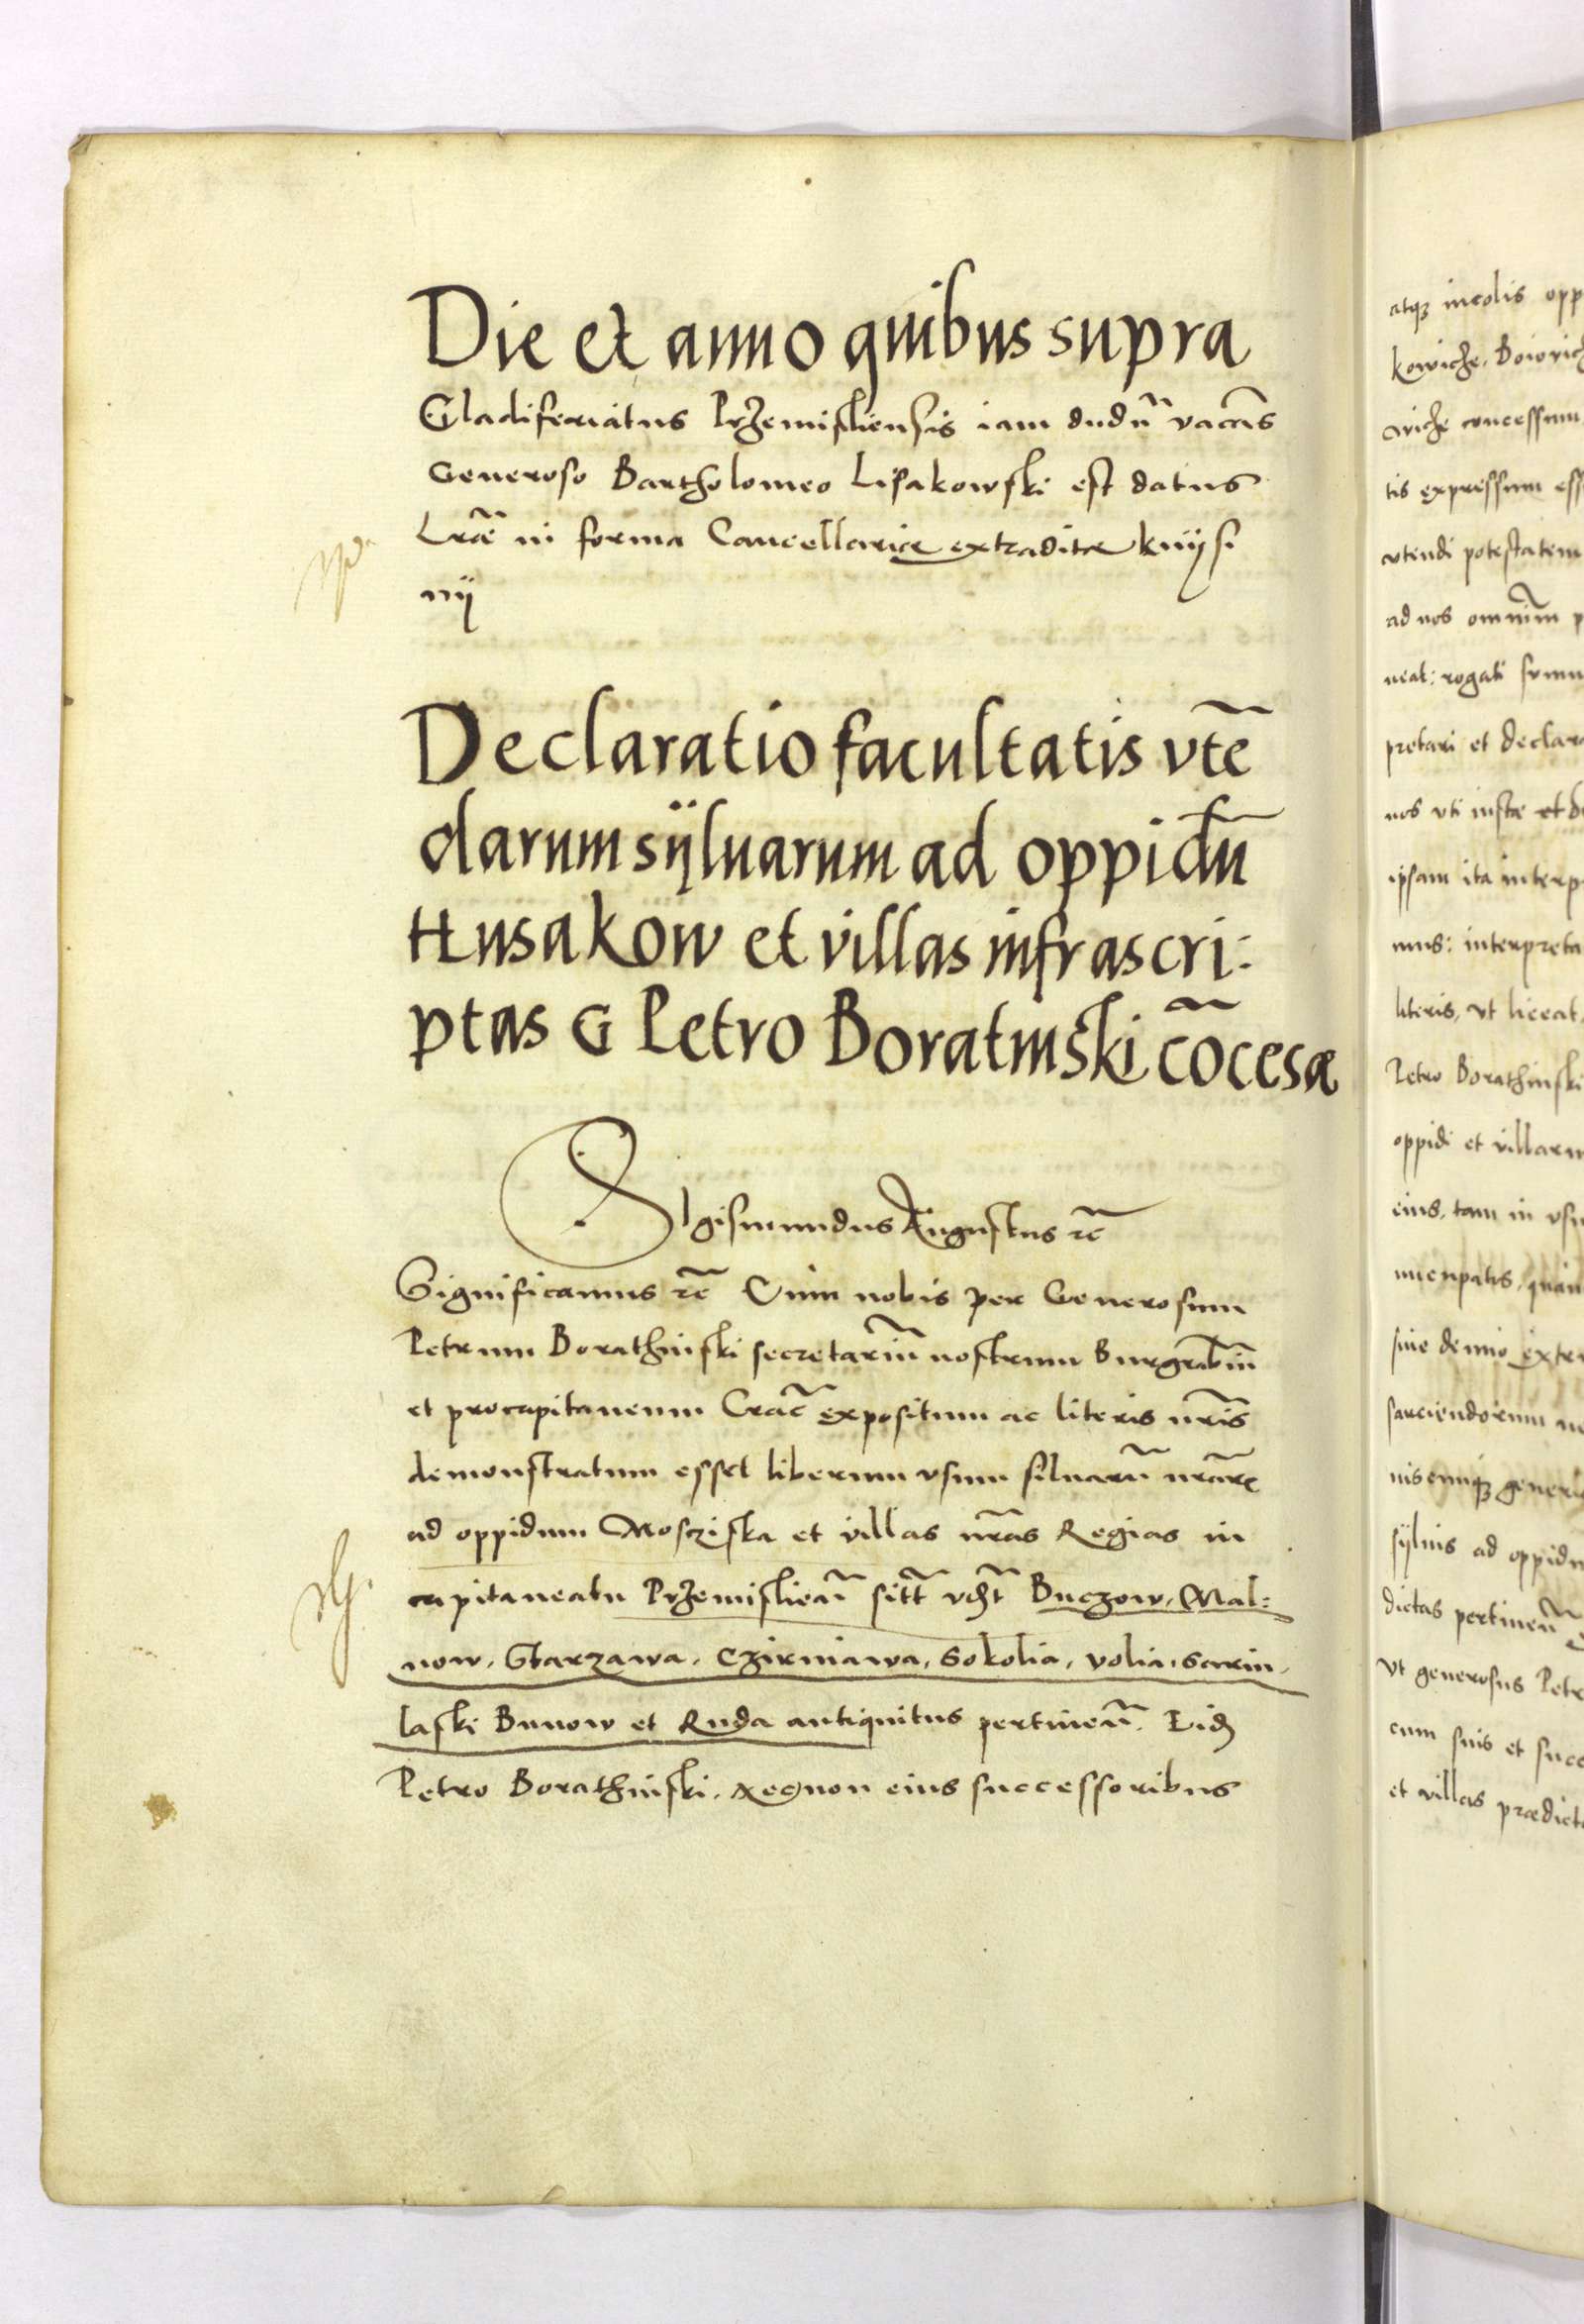 Die et anno quibus supra
Gladiferiatus Przemisliensis iam dudũ vacãs
Generoso Bartholomeo Lisakowski est datus
Lrãe in forma Cancellariæ extraditæ knijsi
nij
Declaratio facultatis vtẽ
darum sÿluarum ad oppidũ
Husakow et villas infrascri:
ptas G Petro Boratinski cõcesæ
SIgismundus Augustus rc̃
Significamus rc̃ Cum nobis per Generosum
Petrum Borathinski secretariũ nostrum Burgrabiũ
et procapitaneum Crac̃ expositum ac literis nr̃is
demonstratum esset liberum vsum siluarũ nrãrꝝ
ad oppidum Mosziska et villas nrãs Regias in
capitaneatu Przemislieñ sitt̃ vcht̃ Buczow, Mal=
now, Starzawa, Czirniawa, Sokolia, volia, Sarin,
laski Bunow et Ruda antiquitus pertineñ. Eid
Petro Borathinski, necnon eius successoribus
atqꝫ incolis opp
kowicze, Boiowic
wicze concessum
tis expressum ess
vtendi potestatem
ad nos omniũm p
neat: rogati sumu
pretari et declar
nos vti iustæ et d
ipsam ita interp
mus: interpreta
literis, vt liceat,
Petro Borathinski
oppidi et villaru
eius, tam in vsu
nuenpatis, quàm
siue denuo extr
sarciendorum
niscunqꝫ generis
sÿluis ad oppidu
dictas pertineñ
vt generosus Petr
cum suis et succ
et villas prædict